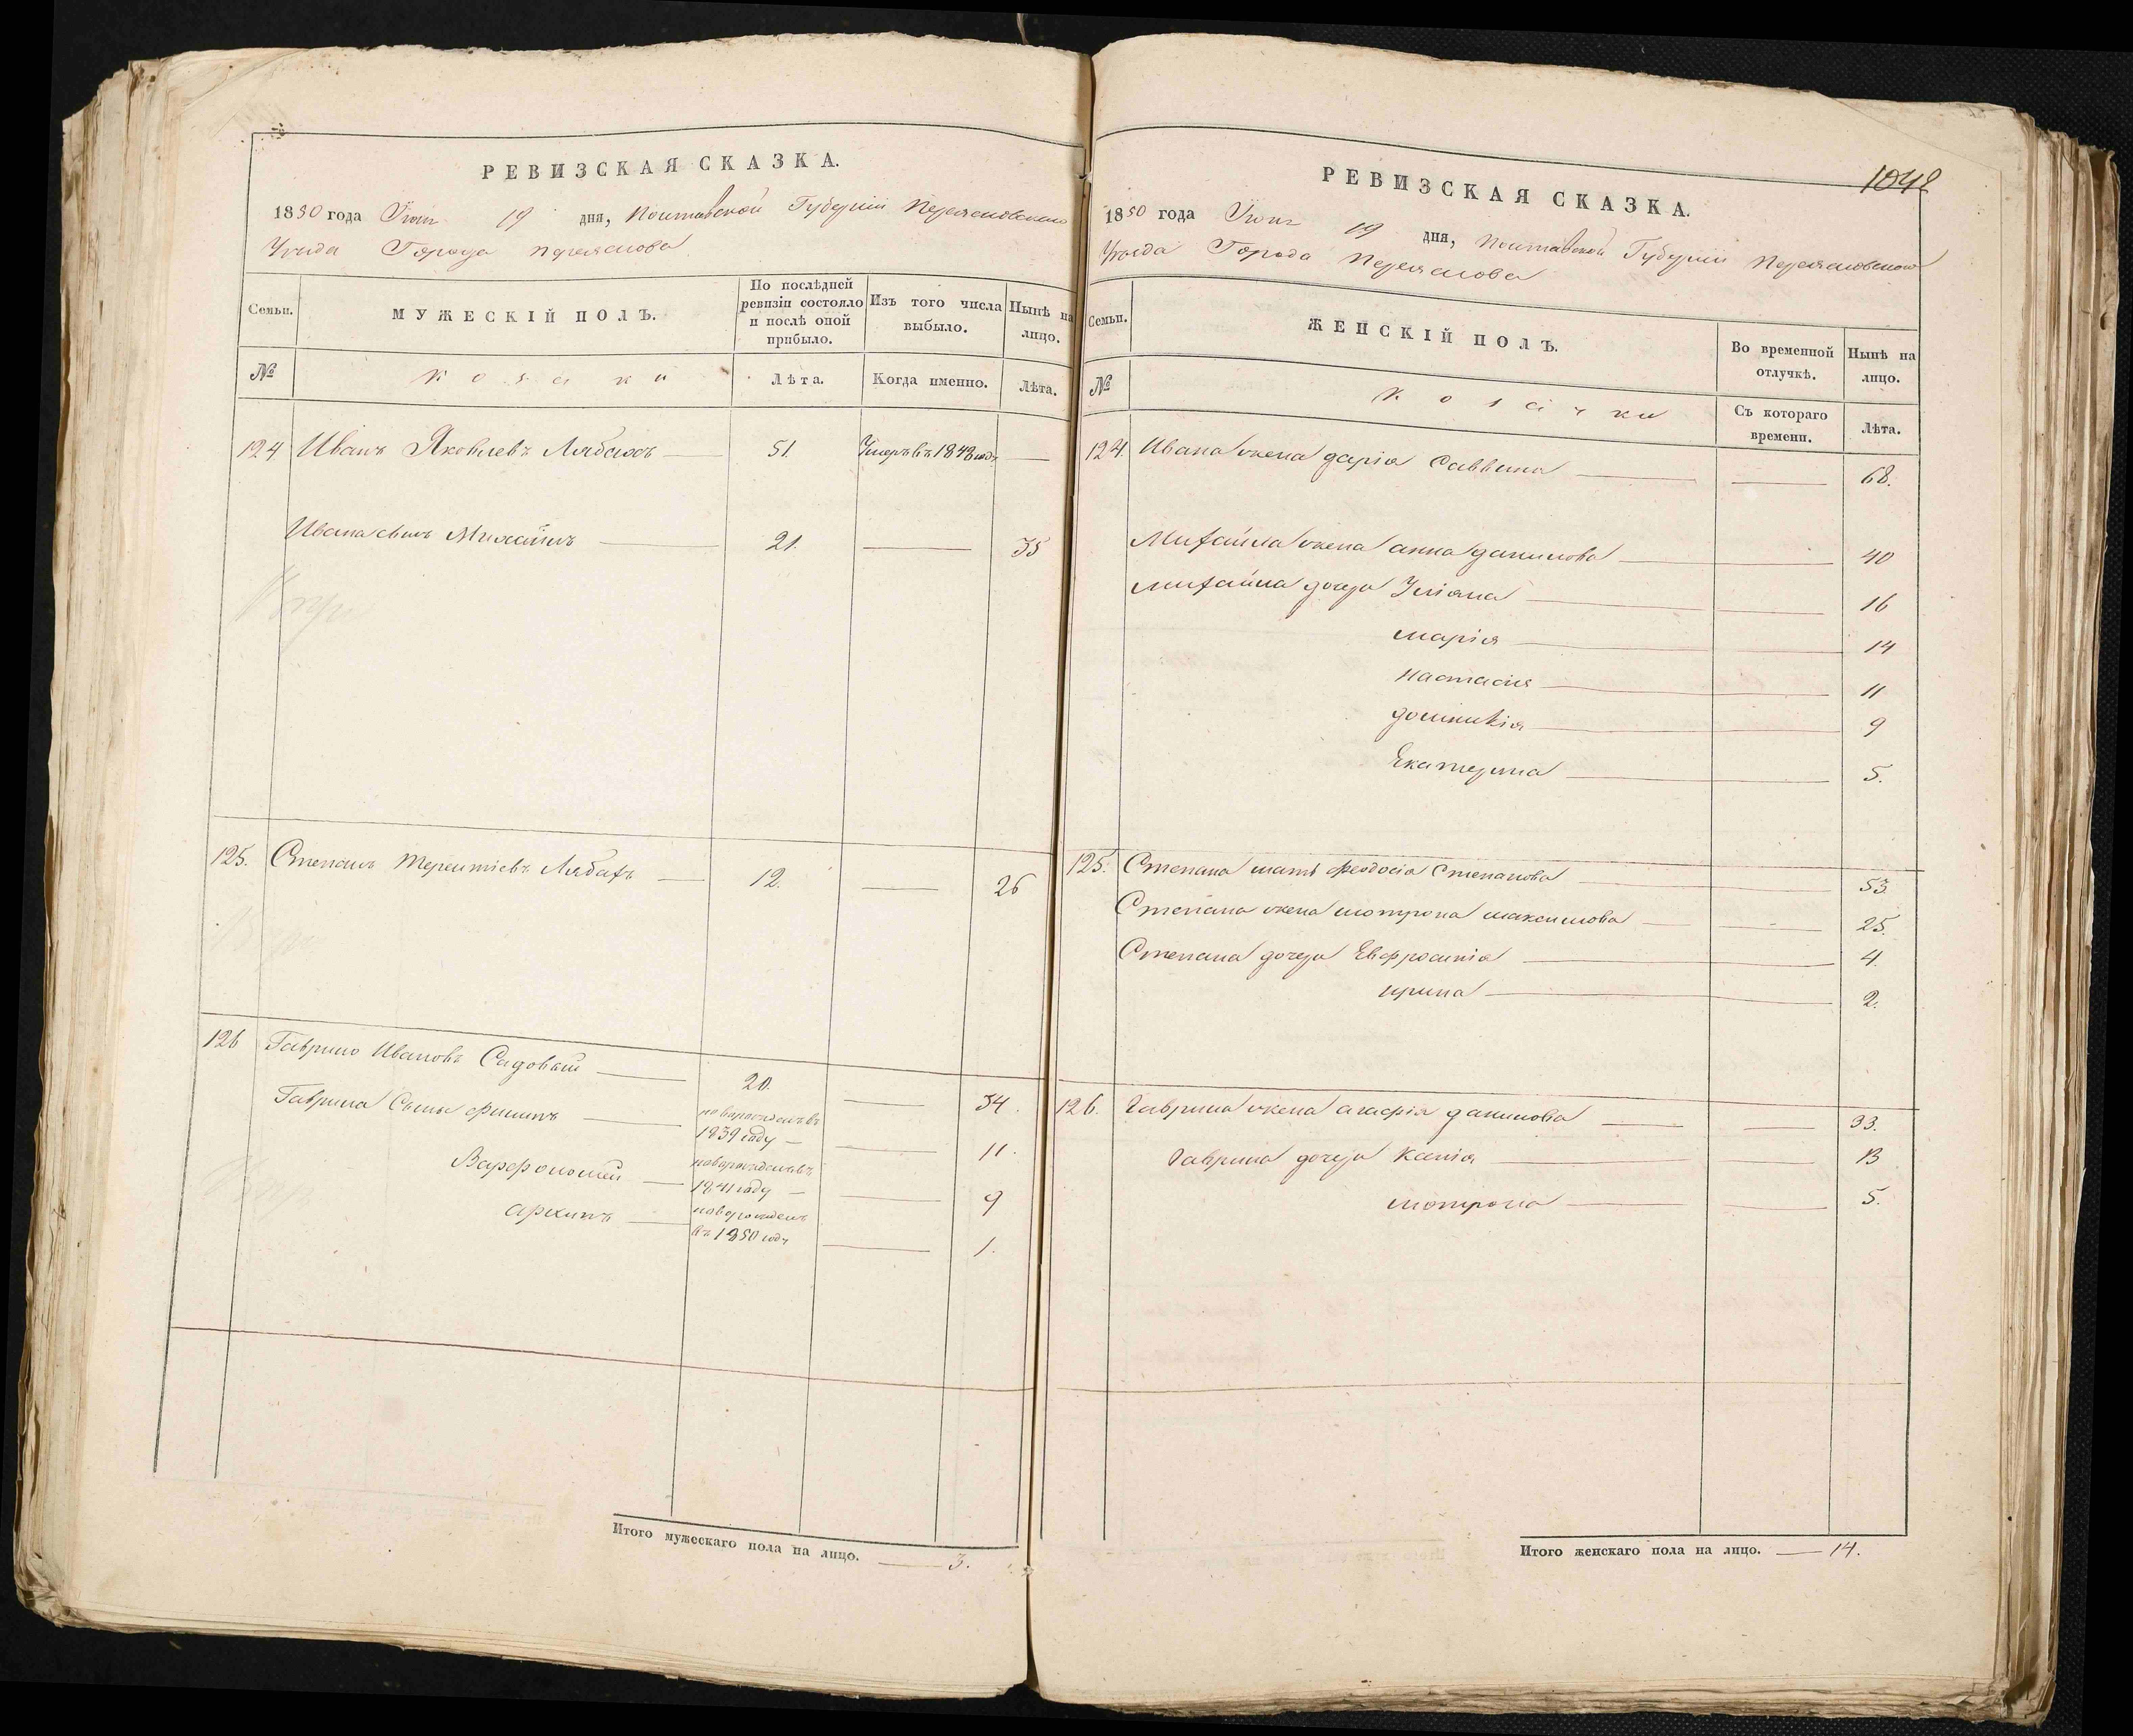 РЕВИЗСКАЯ СКАЗКА.
1850 года Іюня 19 дня, Полтавской Губерніи Переясловскаго
Уезда Города Переяслова
Семьи.
МУЖЕСКІЙ ПОЛЪ.
По послѣдней ревизіи состояло и послѣ оной прибыло.
Изъ того числа выбыло.
Нынѣ на лицо.
№
Козаки
Лѣта.
Когда именно.
Лѣта.
124 Иванъ Яковлевъ Лябахъ 51. Умеръ въ 1848 году
Ивана сынъ Михайлъ 21. 35
125. Степанъ Терентіевъ Лябахъ 12. 26
126 Гаврило Ивановъ Садовый 20. 34.
Гаврила Сыны Филипъ новорожденъ въ 1839 году 11.
Варфоломей новорожденъ въ 1841 году 9
архипъ новорожденъ въ 1850 году 1.
Итого мужескаго пола на лицо. 3.
1048
РЕВИЗСКАЯ СКАЗКА.
1850 года Іюня 19 дня, Полтавской Губерніи Переясловскаго
Уезда Города Переяслова
Семьи.
ЖЕНСКІЙ ПОЛЪ.
Во временной отлучкѣ.
Нынѣ на лицо.
№
Козачки
Съ котораго времени.
Лѣта.
124. Ивана жена дарія Саввина 68.
Михайла жена анна данилова 40
Михайла дочери Уліяна 16
марія 14
настасия 11
доминикія 9
Екатерина 5.
125. Степана мать феодосіа Степанова 53.
Степана жена мотрона максимова 25.
Степана дочери Евфросинія 4.
ирина 2.
126. Гаврила жена агафія данилова 33.
Гаврила дочери Ксенія 13
мотрона 5.
Итого женскаго пола на лицо. 14.